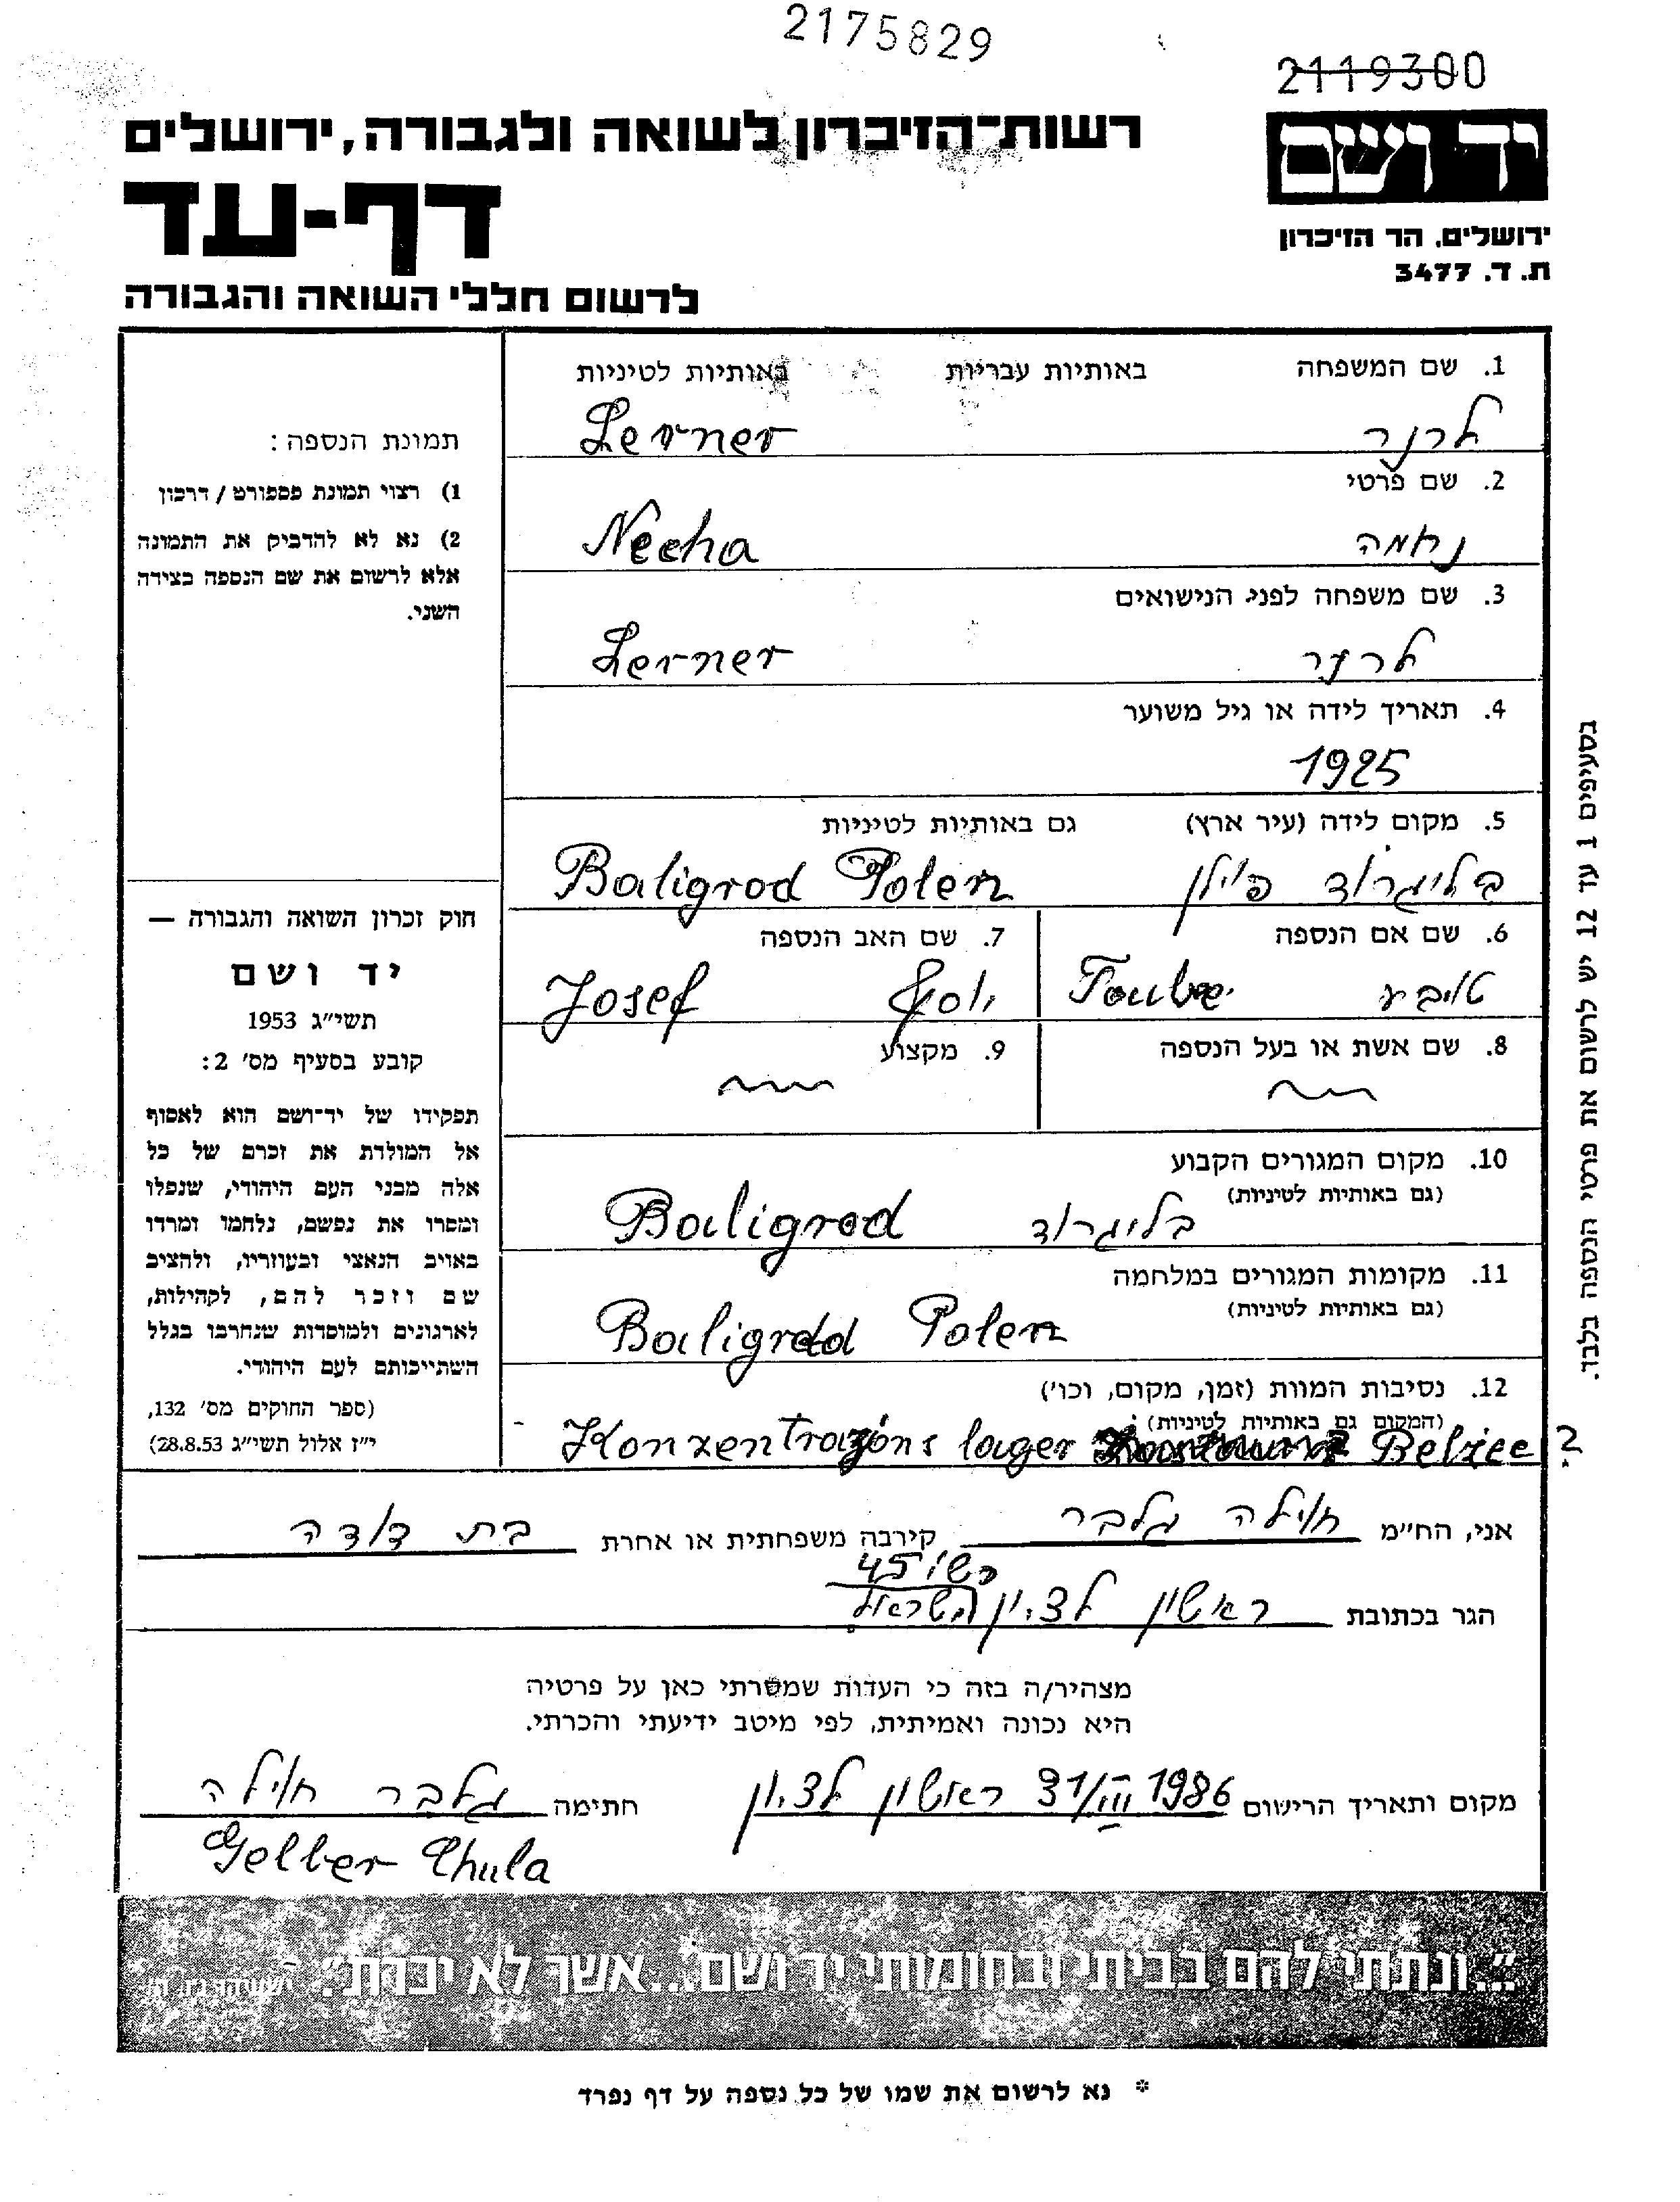 2175829
2119300
רשות־הזיכרון לשואה ולגבורה, ירושלים
יד ושם
דף-עד
ירושלים, הר הזיכרון
ת. ד. 3477
לרשום חללי השואה והגבורה
1. שם המשפחה באותיות עבריות באותיות לטיניות
לרנר Lerner
2. שם פרטי
נחמה Necha
3. שם משפחה לפני הנישואים
לרנר Lerner
4. תאריך לידה או גיל משוער
1925
5. מקום לידה (עיר ארץ) גם באותיות לטיניות
בליגרוד פוילן Baligrod Polen
6. שם אם הנספה 7. שם האב הנספה
טויבע Toube יוסף Josef
8. שם אשת או בעל הנספה 9. מקצוע
10. מקום המגורים הקבוע
(גם באותיות לטיניות)
בליגרוד Baligrod
11. מקומות המגורים במלחמה
(גם באותיות לטיניות)
Baligrod Polen
12. נסיבות המוות (זמן, מקום, וכו')
(המקום גם באותיות לטיניות)
Konzentrazions lager Belzec ?
תמונת הנספה:
1) רצוי תמונת פספורט / דרכון
2) נא לא להדביק את התמונה
אלא לרשום את שם הנספה בצידה
השני.
חוק זכרון השואה והגבורה —
יד ושם
תשי״ג 1953
קובע בסעיף מס' 2:
תפקידו של יד־ושם הוא לאסוף
אל המולדת את זכרם של כל
אלה מבני העם היהודי, שנפלו
ומסרו את נפשם, נלחמו ומרדו
באויב הנאצי ובעוזריו, ולהציב
שם וזכר להם, לקהילות,
לארגונים ולמוסדות שנחרבו בגלל
השתייכותם לעם היהודי.
(ספר החוקים מס' 132,
י״ז אלול תשי״ג 28.8.53)
בסעיפים 1 עד 12 יש לרשום את פרטי הנספה בלבד.
אני, הח״מ חוילה גלבר קירבה משפחתית או אחרת בת דודה
45
הגר בכתובת ראשון לציון ישראל
מצהיר/ה בזה כי העדות שמסרתי כאן על פרטיה
היא נכונה ואמיתית, לפי מיטב ידיעתי והכרתי.
מקום ותאריך הרישום 31/III 1986 ראשון לציון חתימה גלבר חוילה
Gelber Chula
"...ונתתי להם בביתי ובחומותי יד ושם...אשר לא יכרת". ישעיהו נו, ה'
* נא לרשום את שמו של כל נספה על דף נפרד